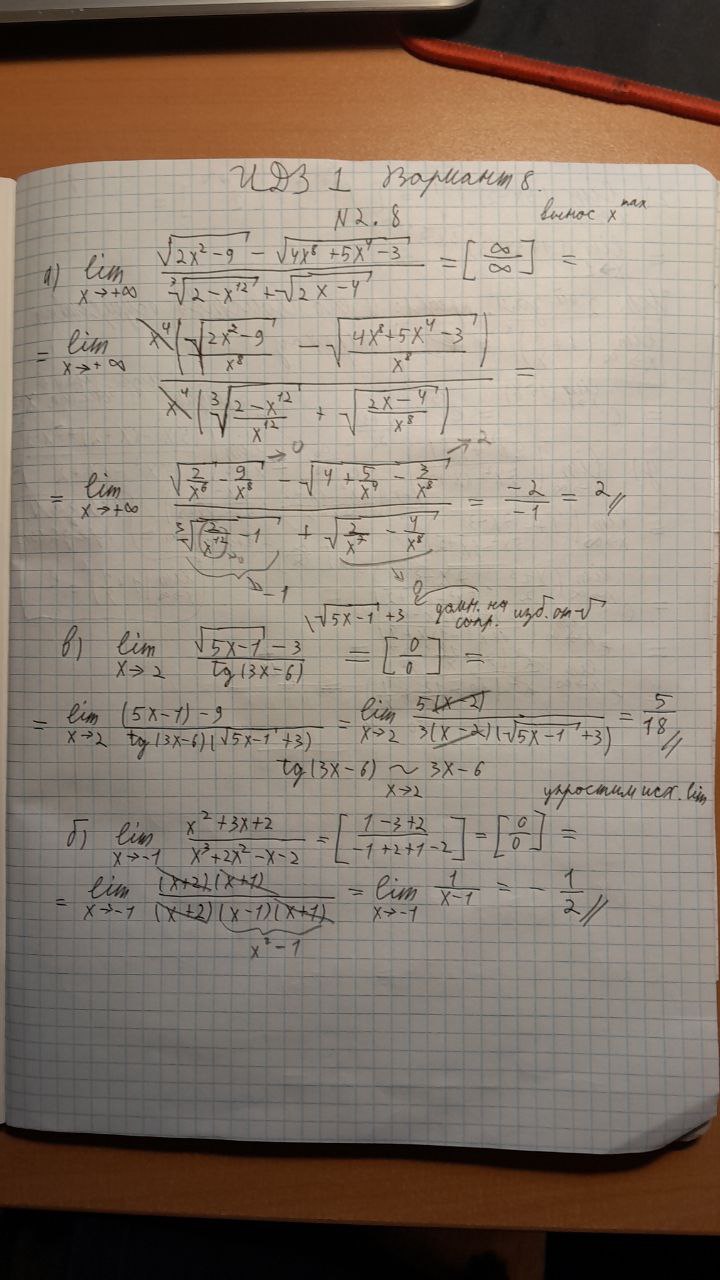 ИДЗ 1 Вариант 8.
N2.8
вынос x^max
а) lim x→+∞ (√(2x²-9) - √(4x⁸+5x⁴-3)) / (³√(2-x¹²) + √(2x-4)) = [∞/∞] =
= lim x→+∞ x⁴(√((2x²-9)/x⁸) - √((4x⁸+5x⁴-3)/x⁸)) / x⁴(³√((2-x¹²)/x¹²) + √((2x-4)/x⁸)) =
→0 →2
= lim x→+∞ (√(2/x⁶ - 9/x⁸) - √(4 + 5/x⁴ - 3/x⁸)) / (³√(2/x¹² - 1) + √(2/x⁷ - 4/x⁸)) = -2/-1 = 2//
→0
→-1 →0
\√(5x-1)+3 домн. на сопр. изб. от √
в) lim x→2 (√(5x-1) - 3) / tg(3x-6) = [0/0] =
= lim x→2 ((5x-1)-9) / (tg(3x-6)(√(5x-1)+3)) = lim x→2 5(x-2) / (3(x-2)(√(5x-1)+3)) = 5/18//
tg(3x-6) ~ 3x-6
x→2
упростим исх. lim
б) lim x→-1 (x²+3x+2) / (x³+2x²-x-2) = [(1-3+2)/(-1+2+1-2)] = [0/0] =
= lim x→-1 (x+2)(x+1) / ((x+2)(x-1)(x+1)) = lim x→-1 1/(x-1) = -1/2//
x²-1